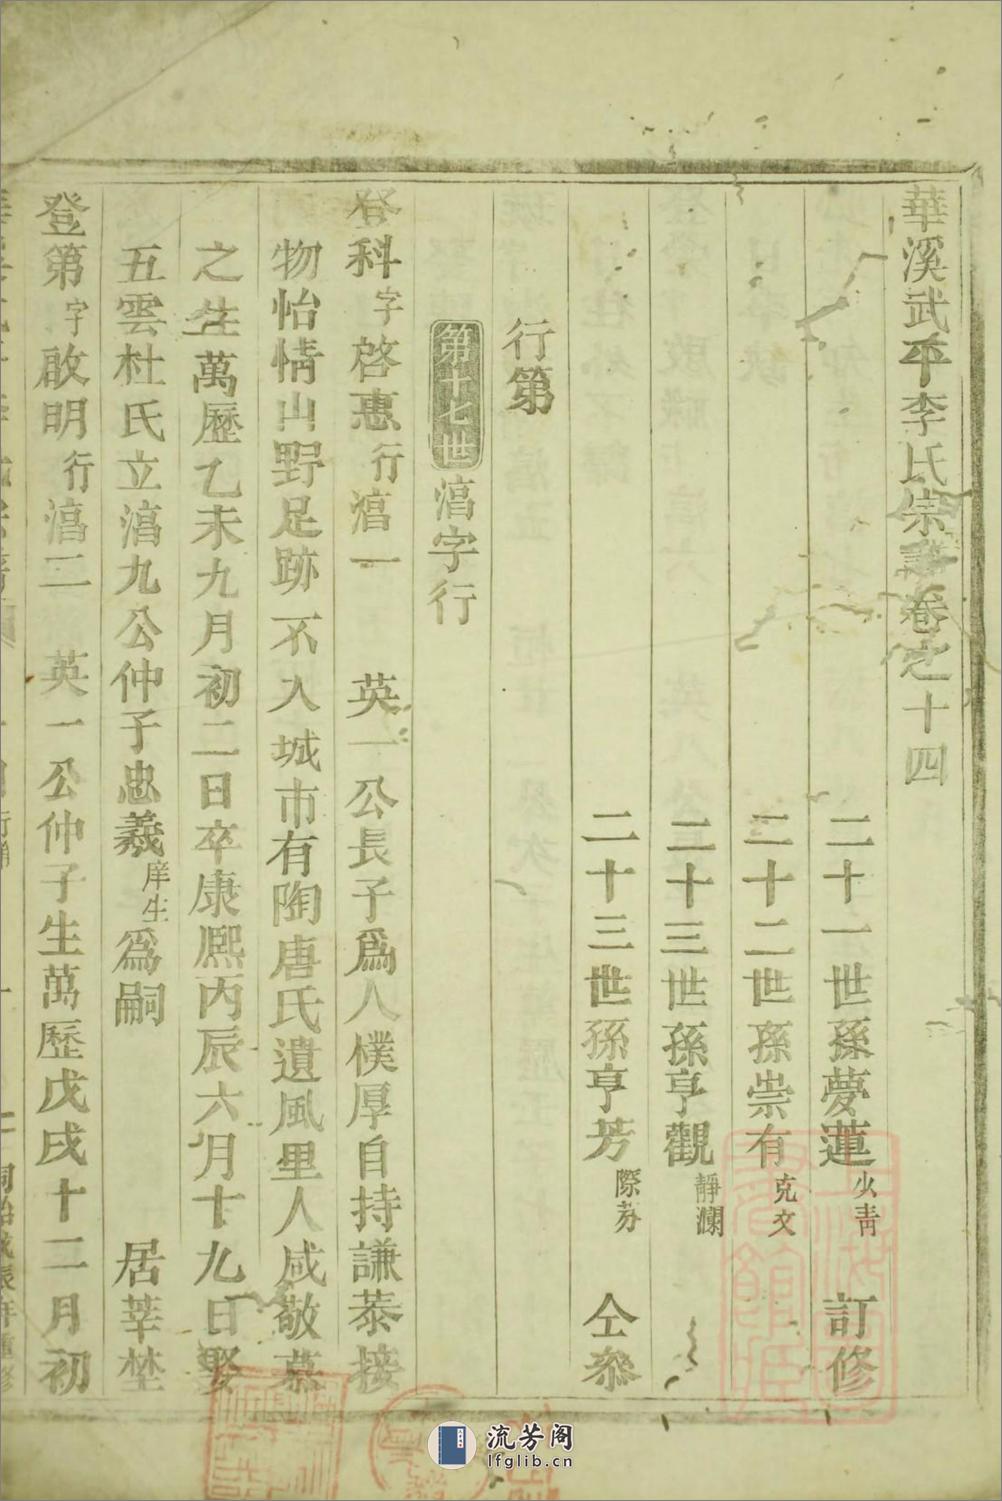 華溪武平李氏宗譜卷之十四
二十一世孫夢蓮 火青 訂修
二十二世孫崇有 克文
二十三世孫亨觀 靜瀾
二十三世孫亨芳 際芬 仝叅
行第
第十七世 湻字行
登科字啓惠行湻一 英一公長子爲人樸厚自持謙恭接
物怡情山野足跡不入城市有陶唐氏遺風里人咸敬慕
之生萬歷乙未九月初二日卒康熙丙辰六月十九日娶
五雲杜氏立湻九公仲子忠義庠生爲嗣 居莘埜
登第字啟明行湻二 英一公仲子生萬歷戊戌十二月初
流芳阁
lfglib.cn